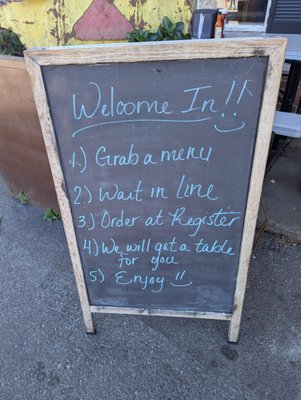 Welcome In!!
1.) Grab a menu
2.) Wait in Line
3.) Order at Register
4.) We will get a table
for you
5.) Enjoy !!